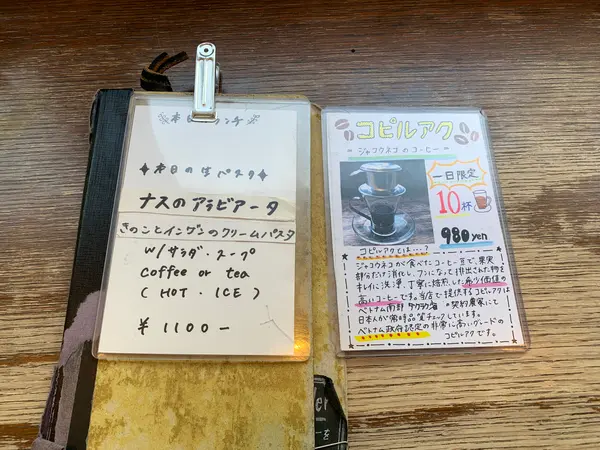 本日のランチ
✦本日の生パスタ✦
ナスのアラビアータ
きのことインゲンのクリームパスタ
w/サラダ・スープ
coffee or tea
(HOT・ICE)
¥1100-
コピルアク
=ジャコウネコのコーヒー=
一日限定
10杯
980yen
コピルアクとは…?
ジャコウネコが食べたコーヒー豆で、果実
部分だけ消化し、フンになって排出された物を
キレイに洗浄、丁寧に焙煎した希少価値の
高いコーヒーです。当店で提供するコピルアクは
ベトナム南部 ダクラク省の契約農家にて
日本人が常時品質チェックしています。
ベトナム政府認定の非常に高いグレードの
コピルアクです。